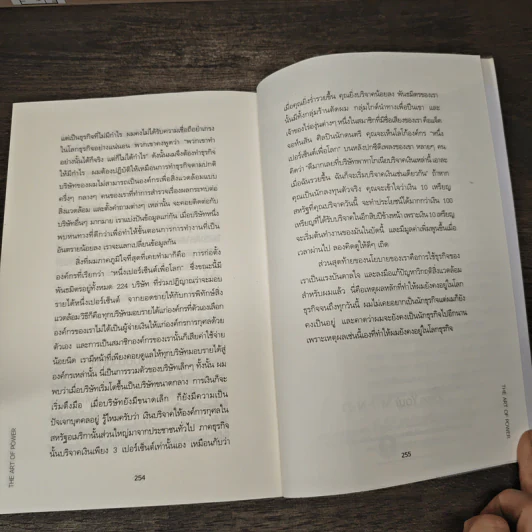 แต่เป็นธุรกิจที่ไม่มีกำไร ผมคงไม่ได้รับความเชื่อถือย่างเกรง
ในโลกธุรกิจอย่างแน่นอน พวกเขาคงพูดว่า "พวกเขาทำ
อย่างนั้นได้ก็จริง แต่ก็ไม่ได้กำไร" ดังนั้นผมจึงต้องทำธุรกิจ
ให้มีกำไร ผมต้องปฏิบัติให้เหมือนการทำธุรกิจตามปกติ
บริษัทของผมไม่สามารถเป็นองค์กรเพื่อสิ่งแวดล้อมแบบ
ครึ่งๆ กลางๆ คนของเราที่ทำการสำรวจเรื่องผลกระทบต่อ
สิ่งแวดล้อม และตั้งคำถามต่างๆ เหล่านั้น จะคอยติดต่อกับ
บริษัทอื่นๆ มากมาย เราแบ่งปันข้อมูลแก่กัน เมื่อบริษัทหนึ่ง
พบหนทางที่ดีกว่าเพื่อทำให้ขั้นตอนการการทำงานที่เป็น
อันตรายน้อยลง เราจะแลกเปลี่ยนข้อมูลกัน
สิ่งที่ผมภาคภูมิใจที่สุดที่เคยทำมาก็คือ การก่อตั้ง
องค์กรที่เรียกว่า "หนึ่งเปอร์เซ็นต์เพื่อโลก" ซึ่งขณะนี้มี
พันธมิตรอยู่ทั้งหมด 224 บริษัท ที่ร่วมปฏิญาณว่าจะมอบ
รายได้หนึ่งเปอร์เซ็นต์ จากยอดขายให้กับการพิทักษ์สิ่ง
แวดล้อมวิธีก็คือทุกบริษัทมอบรายได้แก่องค์กรที่ตัวเองเลือก
องค์กรของเราไม่ได้เป็นผู้จ่ายเงินให้แก่องค์กรการกุศลด้วย
ตัวเอง และการเป็นสมาชิกองค์กรของเรานั้นก็เสียค่าใช้จ่าย
น้อยนิด เรามีหน้าที่เพียงคอยดูแลให้ทุกบริษัทมอบรายได้สู่
องค์กรเหล่านั้น นี่เป็นการรวมตัวของบริษัทเล็กๆ ทั้งนั้น ผม
พบว่าเมื่อบริษัทเริ่มโตขึ้นเป็นบริษัทขนาดกลาง การเงินก็จะ
เริ่มตึงมือ เมื่อบริษัทยังมีขนาดเล็ก ก็ยังมีความเป็น
ปัจเจกบุคคลอยู่ รู้ไหมครับว่า เงินบริจาคให้องค์การกุศลใน
สหรัฐอเมริกานั้นส่วนใหญ่มาจากประชาชนทั่วไป ภาคธุรกิจ
นั้นบริจาคเงินเพียง 3 เปอร์เซ็นต์เท่านั้นเอง เหมือนกับว่า
254
THE ART OF POWER
เมื่อคุณยิ่งร่ำรวยขึ้น คุณยิ่งบริจาคน้อยลง พันธมิตรของเรา
นั้นมีทั้งกลุ่มร้านตัดผม กลุ่มไกด์นำทางเพื่อปีนเขา และ
เจ้าของไร่องุ่นต่างๆ หนึ่งในสมาชิกที่มีชื่อเสียงของเรา คือแจ็ค
จอห์นสัน ศิลปินนักดนตรี คุณจะเห็นโลโก้องค์กร "หนึ่ง
เปอร์เซ็นต์เพื่อโลก" บนหลังปกซีดีเพลงของเขา หลายๆ คน
คิดว่า "ดีมากเลยที่บริษัทพาทาโกเนียบริจาคเงินเหล่านี้ เอาละ
เมื่อฉันรวยขึ้น ฉันก็จะเริ่มบริจาคเงินเช่นเดียวกัน" ถ้าหาก
คุณเป็นนักลงทุนตัวจริง คุณจะเข้าใจว่าเงิน 10 เหรียญ
สหรัฐที่คุณบริจาควันนี้ จะทำประโยชน์ได้มากกว่าเงิน 100
เหรียญที่ได้รับบริจาคในอีกสิบปีข้างหน้า เพราะเงิน 10 เหรียญ
จะเริ่มต้นทำงานของมันในบัดนี้ และมีมูลค่าเพิ่มพูนขึ้นเมื่อ
เวลาผ่านไป ลองคิดดูให้ดีๆ เถิด
ส่วนสุดท้ายของนโยบายของเราคือการใช้ธุรกิจของ
เราเป็นแรงบันดาลใจ และลงมือแก้ปัญหาวิกฤติสิ่งแวดล้อม
สำหรับผมแล้ว นี่คือเหตุผลหลักที่ทำให้ผมยังคงอยู่ในโลก
ธุรกิจจนถึงทุกวันนี้ ผมไม่เคยอยากเป็นนักธุรกิจแต่ผมก็ยัง
คงเป็นอยู่ และคาดว่าผมจะยังคงเป็นนักธุรกิจไปอีกนาน
เพราะเหตุผลเช่นนี้เองที่ทำให้ผมยังคงอยู่ในโลกธุรกิจ
255
THE ART OF POWER